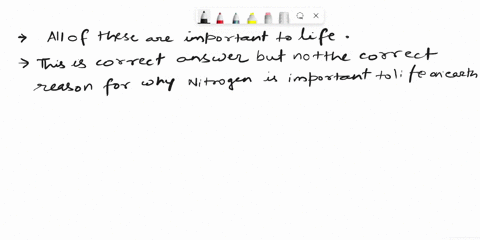 → All of these are important to life.
→ This is correct answer but not the correct
reason for why Nitrogen is important to life on earth